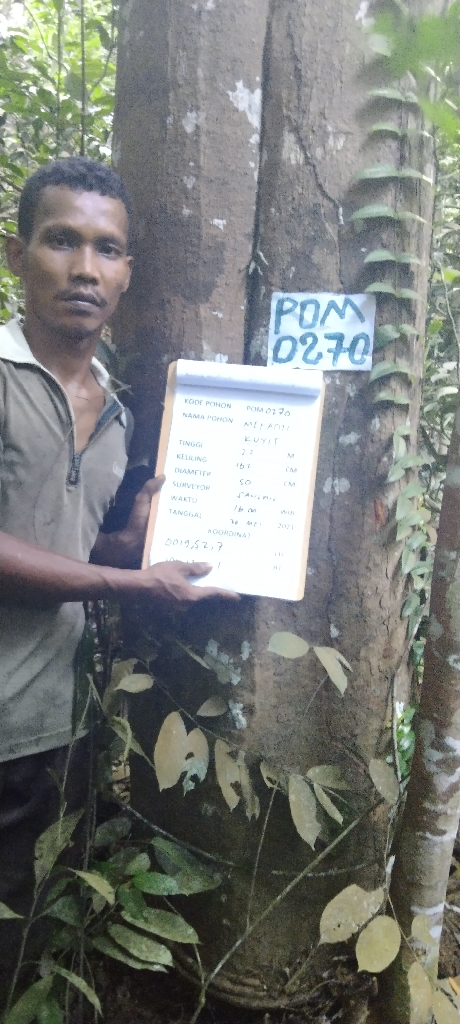 POM
0270
KODE POHON POM 0270
NAMA POHON MERANTI
KUNIT
TINGGI 27 M
KELILING 157 CM
DIAMETER 50 CM
SURVEYOR
WAKTU WIB
TANGGAL 26 MEI 2021
KOORDINAT
0019,52,7 LU